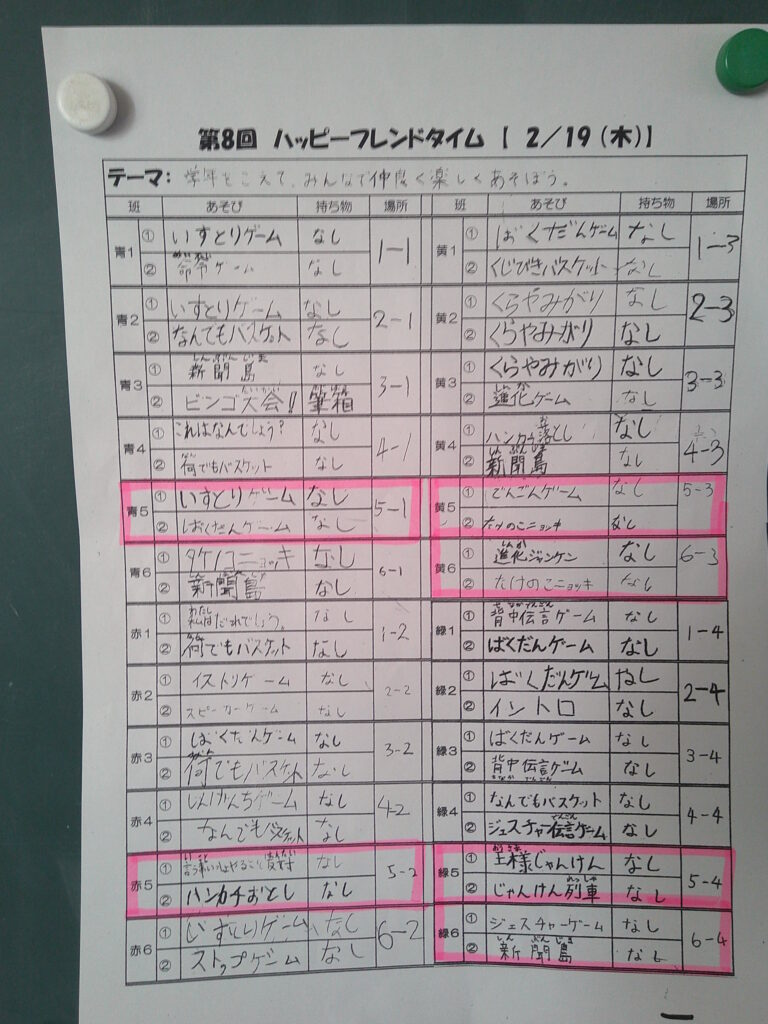 第8回 ハッピーフレンドタイム 【 2/19(木)】
テーマ: 学年をこえて、みんなで仲良く楽しくあそぼう。
班 あそび 持ち物 場所 班 あそび 持ち物 場所
青1 ① いすとりゲーム なし 1-1 黄1 ① ばくだんゲーム なし 1-3
② 命令ゲーム なし ② くじびきバスケット なし
青2 ① いすとりゲーム なし 2-1 黄2 ① くらやみがり なし 2-3
② なんでもバスケット なし ② くらやみがり なし
青3 ① 新聞島 なし 3-1 黄3 ① くらやみがり なし 3-3
② ビンゴ大会!! 筆箱 ② 進化ゲーム なし
青4 ① これはなんでしょう? なし 4-1 黄4 ① ハンカチ落とし なし 4-3
② 何でもバスケット なし ② 新聞島 なし
青5 ① いすとりゲーム なし 5-1 黄5 ① でんごんゲーム なし 5-3
② ばくだんゲーム なし ② たけのこニョッキ なし
青6 ① タケノコニョッキ なし 6-1 黄6 ① 進化ジャンケン なし 6-3
② 新聞島 なし ② たけのこニョッキ なし
赤1 ① 私はだれでしょう。 なし 1-2 緑1 ① 背中伝言ゲーム なし 1-4
② 何でもバスケット なし ② ばくだんゲーム なし
赤2 ① イストリゲーム なし 2-2 緑2 ① ばくだんゲーム なし 2-4
② スピーカーゲーム なし ② イントロ なし
赤3 ① ばくだんゲーム なし 3-2 緑3 ① ばくだんゲーム なし 3-4
② 何でもバスケット なし ② 背中伝言ゲーム なし
赤4 ① しんげんちゲーム なし 4-2 緑4 ① なんでもバスケット なし 4-4
② なんでもバスケット なし ② ジェスチャー伝言ゲーム なし
赤5 ① なし 5-2 緑5 ① 王様じゃんけん なし 5-4
② ハンカチおとし なし ② じゃんけん列車 なし
赤6 ① いすとりゲーム なし 6-2 緑6 ① ジェスチャーゲーム なし 6-4
② ストップゲーム なし ② 新聞島 なし